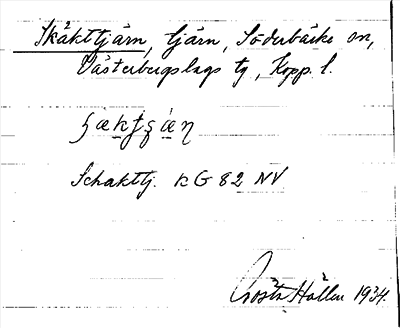 Skäkttjärn, tjärn, Söderbärke sn,
Västerbergslags tg, Kopp. l.
Schakttj. KG 82 NV
Gösta Hallén 1934.